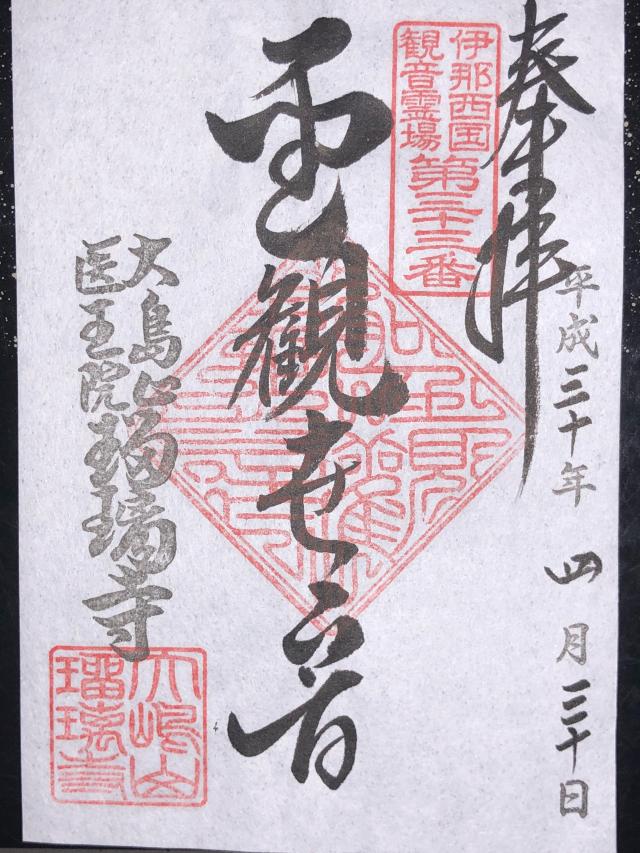 奉拝
平成三十年 四月三十日
伊那西国
観音霊場
第二十三番
聖観世音
大島山瑠璃寺
医王院
大嶋山
瑠璃寺